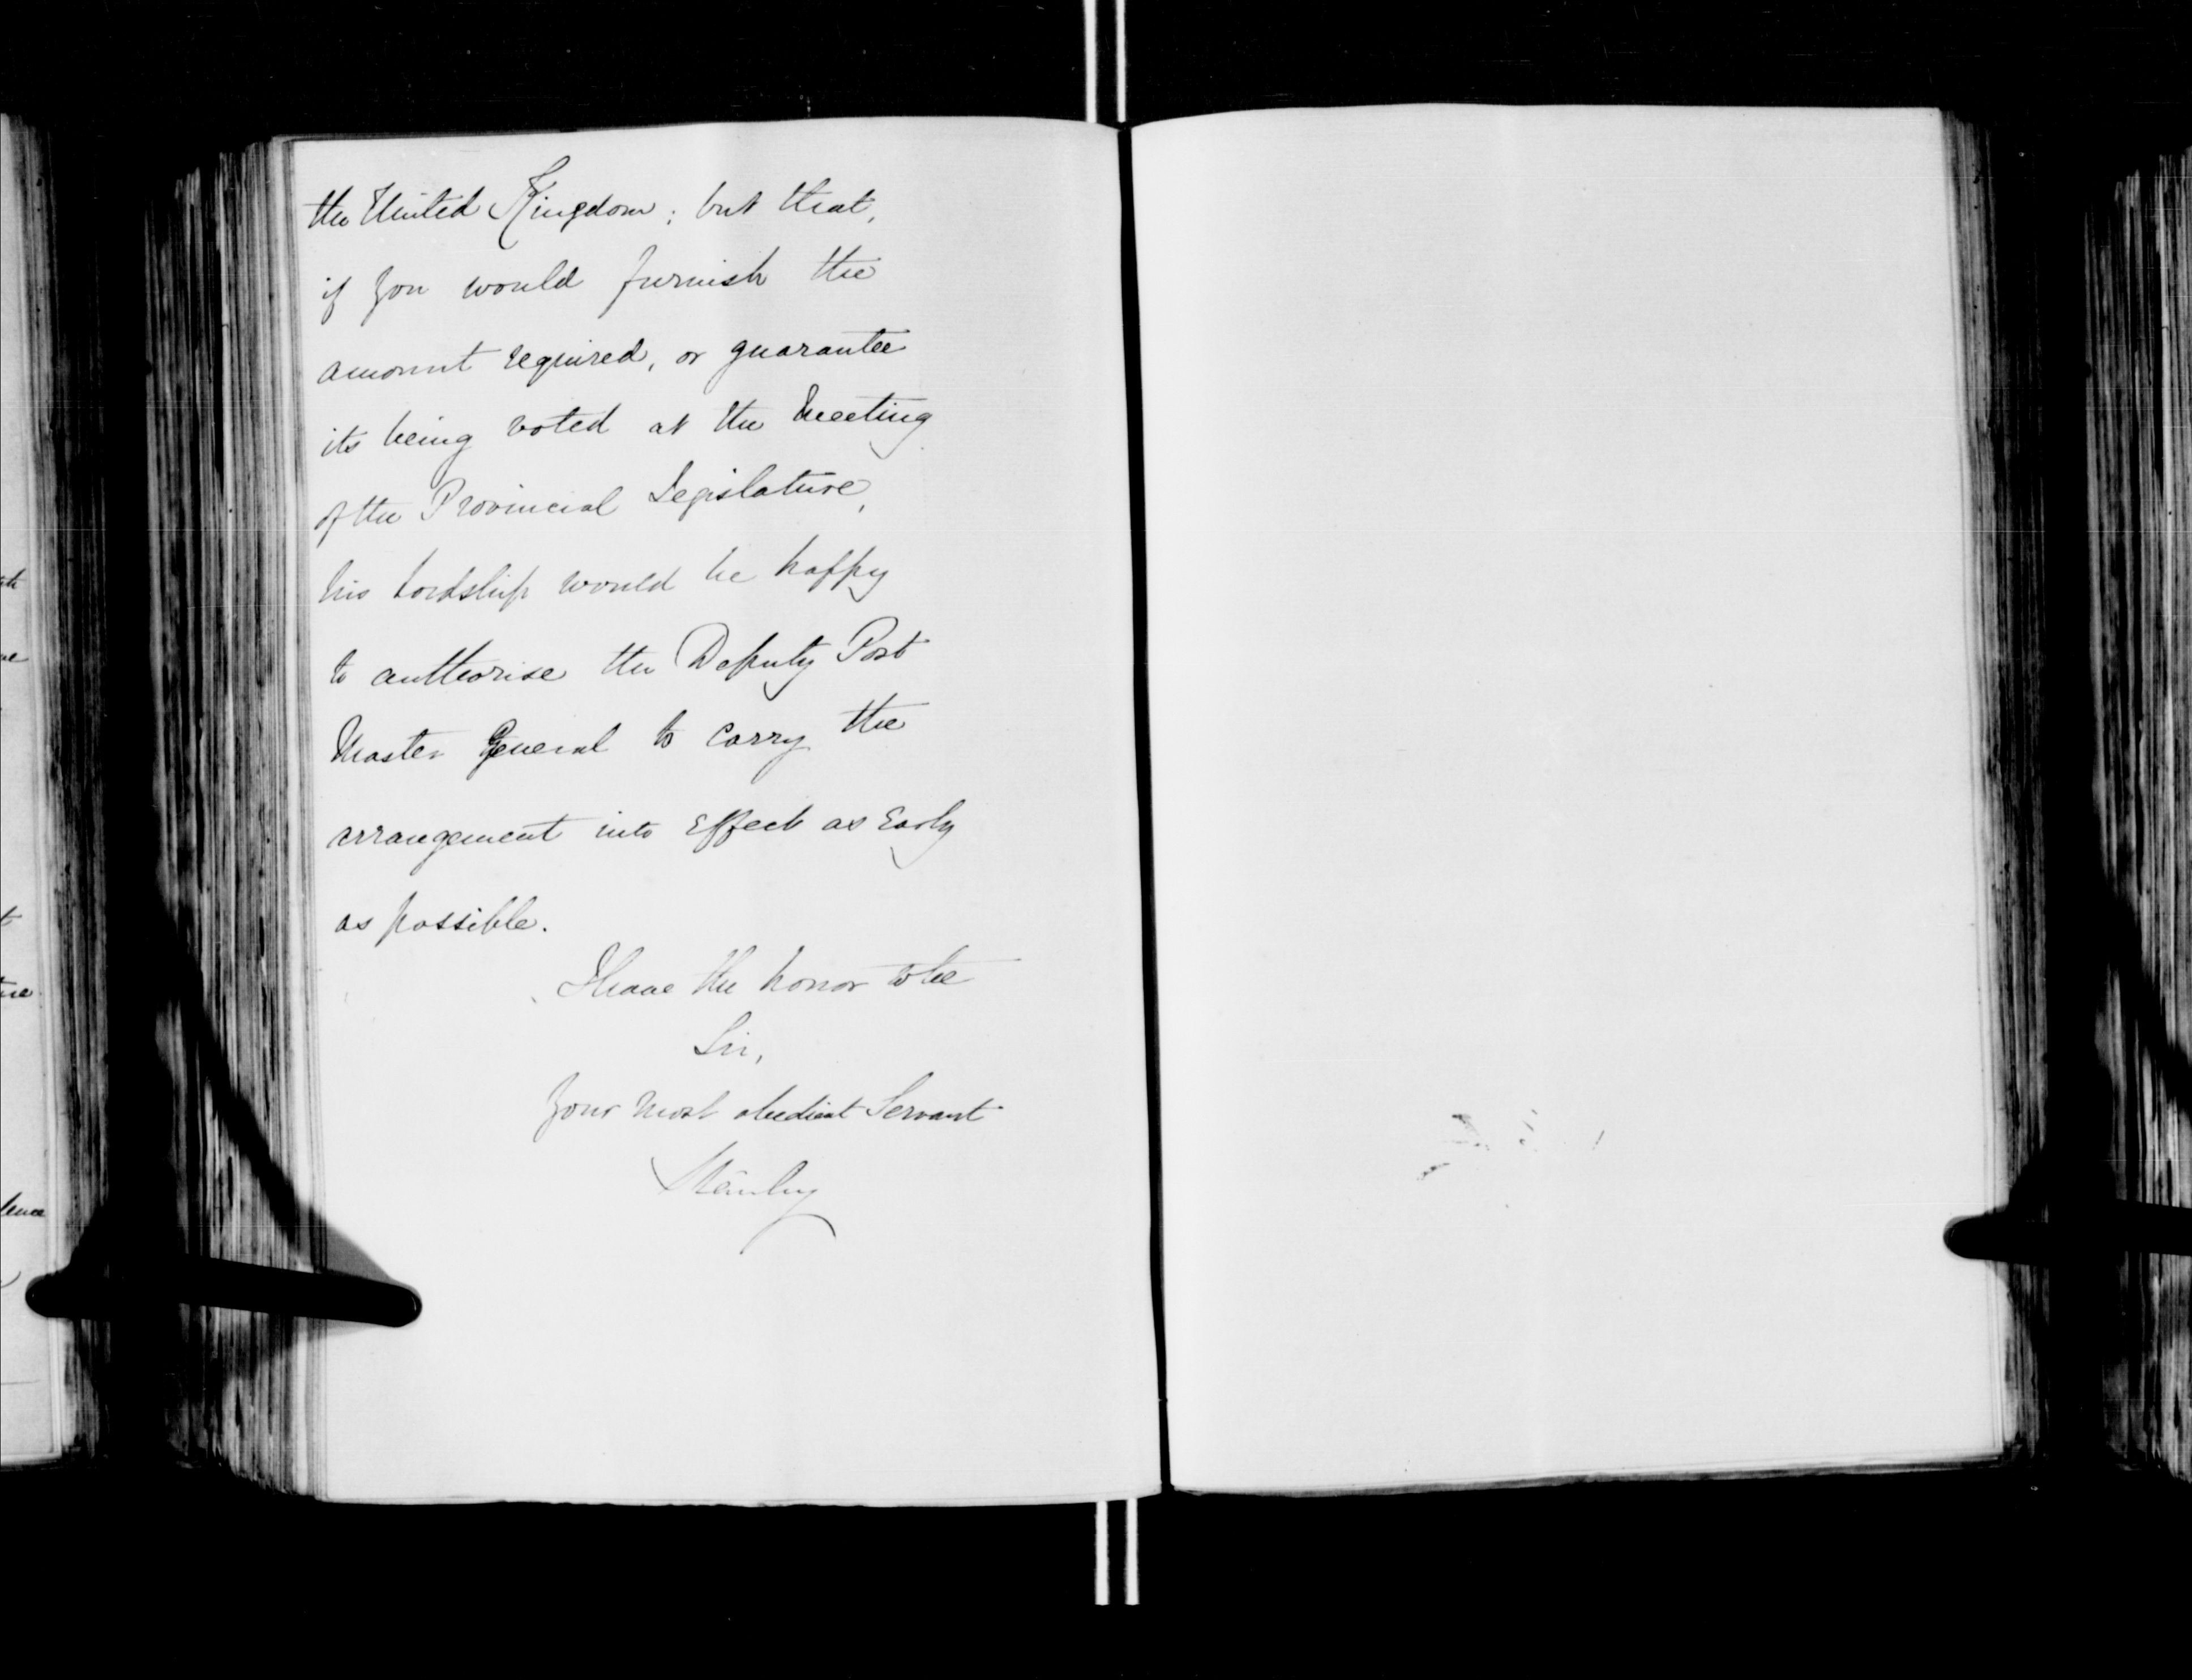 the United Kingdom; but that,
if you would furnish the
amount required, or guarantee
its being voted at the Meeting
of the Provincial Legislature,
his Lordship would be happy
to authorise the Deputy Post
Master General to carry the
arrangement into effect as early
as possible.
I have the honor to be
Sir,
Your most obedient Servant
Stanley